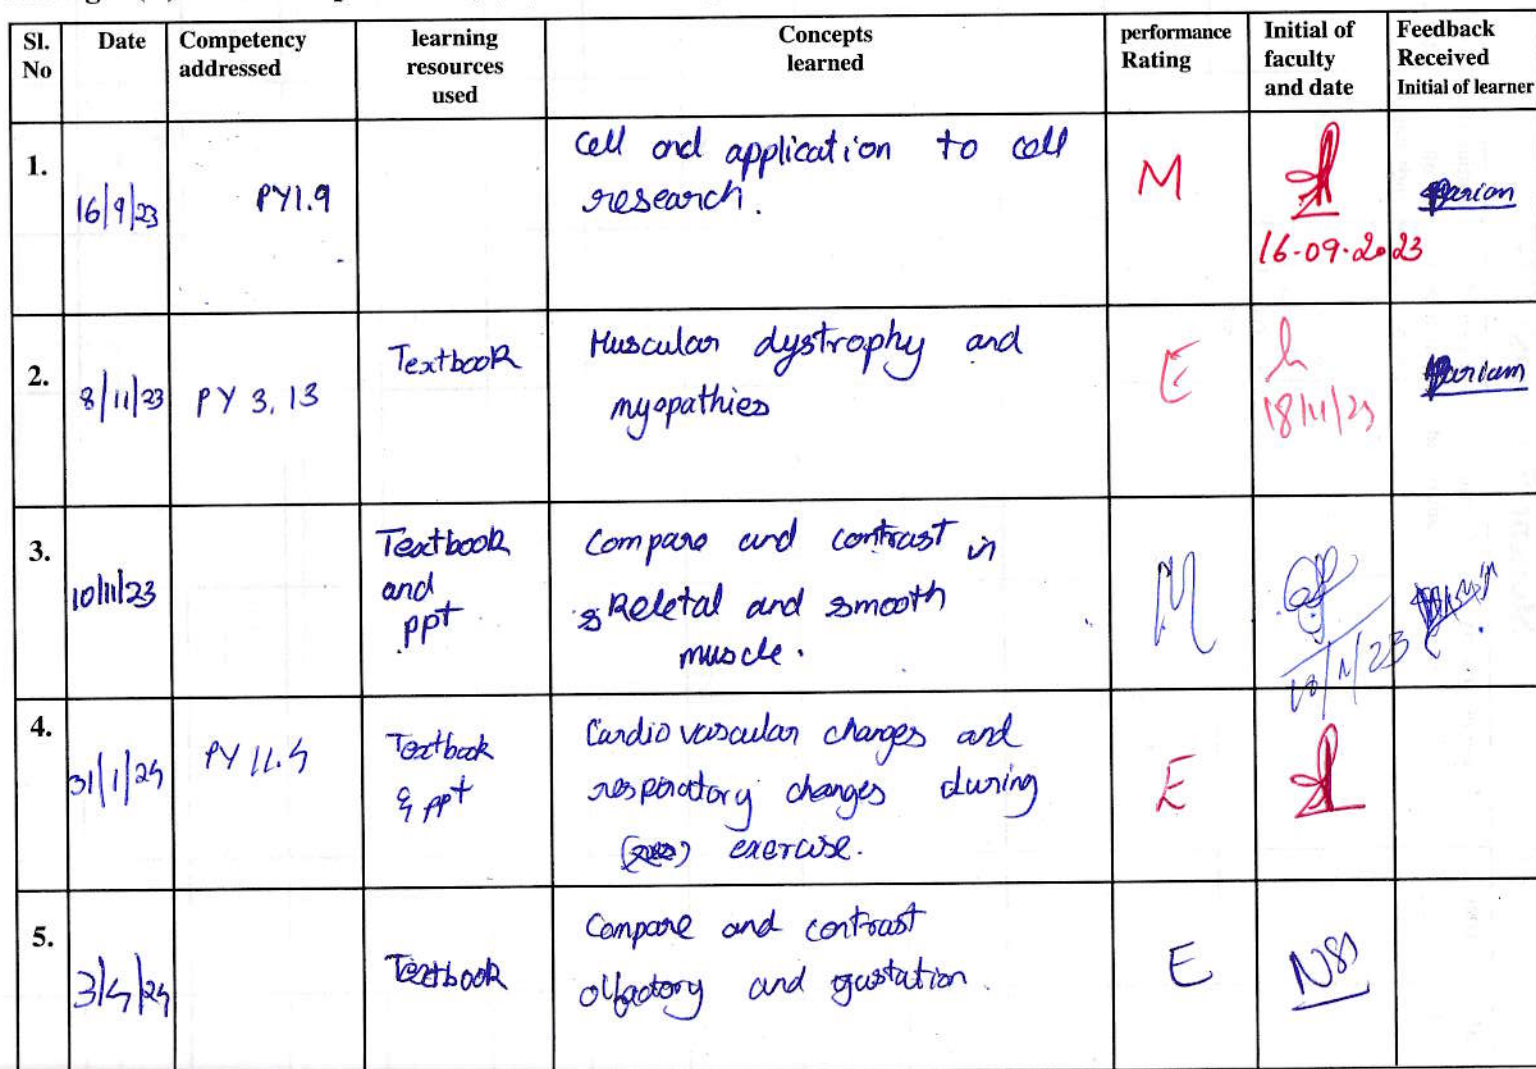 Sl. No
Date
Competency addressed
learning resources used
Concepts learned
performance Rating
Initial of faculty and date
Feedback Received Initial of learner
1.
16/9/23
PY1.9
Cell and application to cell
research.
M
16-09-2023
2.
8/11/23
PY 3.13
Textbook
Muscular dystrophy and
myopathies
E
18/11/23
3.
10/11/23
Textbook
and
ppt
Compare and contrast in
skeletal and smooth
muscle.
M
4.
31/1/24
PY 11.4
Textbook
& ppt
Cardio vascular changes and
respiratory changes during
exercise.
E
5.
3/4/24
Textbook
Compare and contrast
olfactory and gustation.
E